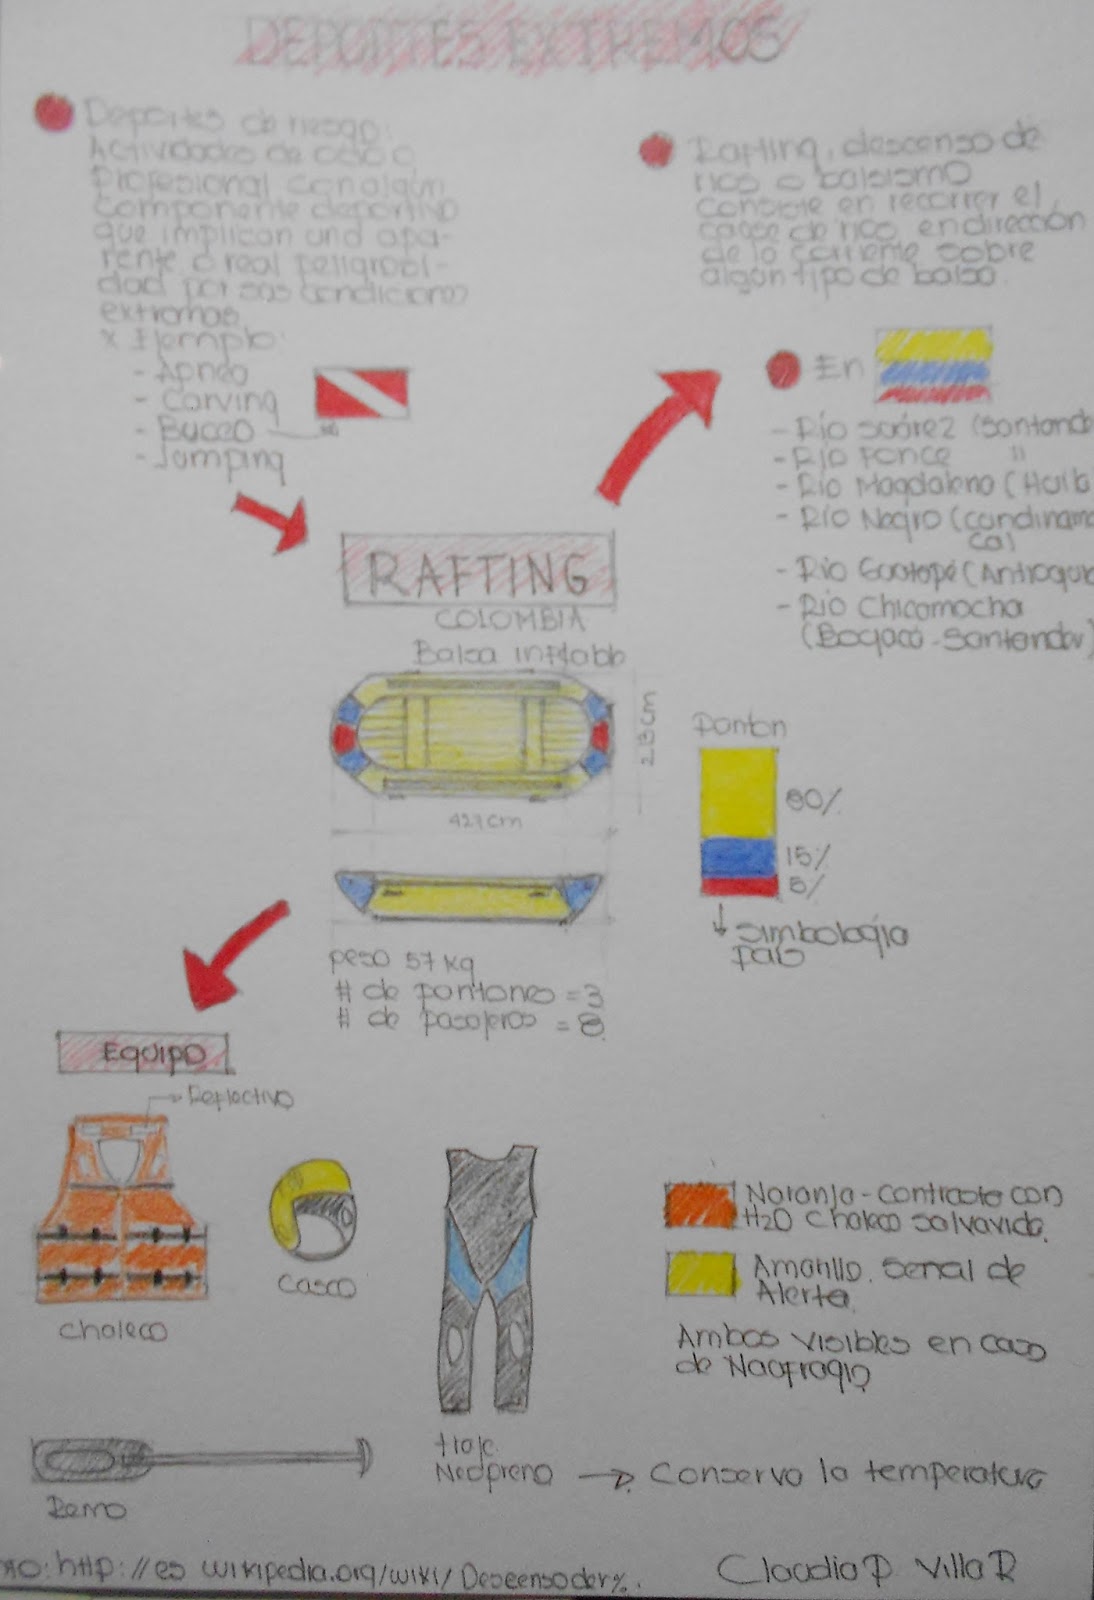 DEPORTES EXTREMOS
Deportes de riesgo:
Actividades de ocio o
profesional con algún
componente deportivo
que implican una apa-
rente o real peligrosi-
dad por sus condiciones
extremas
x Ejemplo:
- Apnea
- Carving
- Buceo
- Jumping
Rafting, descenso de
rios o balsismo
consiste en recorrer el
cauce de rios, en dirección
de la corriente sobre
algún tipo de balsa.
En
- Río Suárez (Santande
- Río Fonce "
- Río Magdalena (Huila
- Río Negro (cundinama
ca)
- Río Guatapé (Antioquia
- Río Chicamocha
(Boyacá - Santander)
RAFTING
COLOMBIA
Balsa inflable
213 cm
427 cm
Ponton
80%
15%
5%
Simbología
País
peso 57 kg
# de pontones = 3
# de pasajeros = 8
Equipo
Reflectivo
Chaleco
Casco
Naranja - Contraste con
H2O Chaleco salvavida.
Amarillo. Señal de
Alerta
Ambos visibles en caso
de Naufragio
traje
Neopreno → Conserva la temperatura
Remo
http://es wikipedia.org/wiki/Descensoder%.
Claudia P Villa R